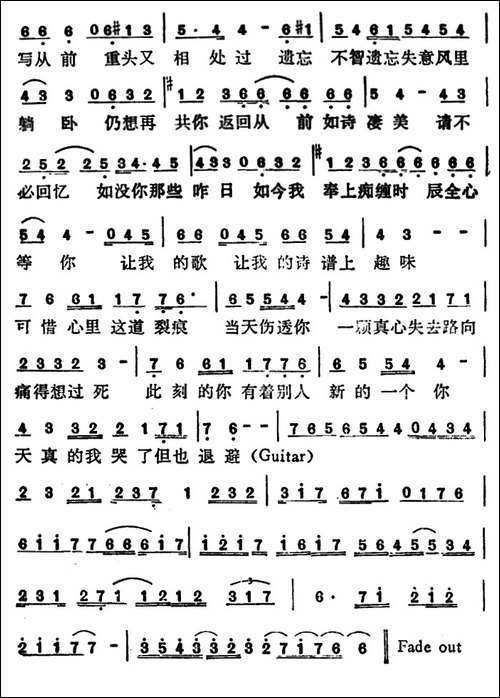 6 6 6 0 6 #1 3 | 5 · 4 4 - 6 #1 | 5 4 6 1 5 4 5 4 |
写从 前 重头又 相 处过 遗忘 不智遗忘失意风里
4 3 3 0 6 3 2 | #1 2 3 6 6 6 6 6 6 | 5 4 - 4 3 |
躺 卧 仍想再 共你 返回从 前 如诗 凄 美 请不
2 5 2 2 5 3 4 · 4 5 | 4 3 3 0 6 3 2 | #1 2 3 6 6 6 6 6 6 |
必回忆 如没你那些 昨 日 如今我 奉上痴缠时 辰全心
5 4 4 - 0 4 5 | 6 6 0 4 5 6 6 5 4 | 4 3 - - |
等 你 让我 的歌 让我的诗谱上 趣味
7 6 6 1 1 7 7 6 · | 6 5 5 5 4 - | 4 3 3 2 2 1 7 1 |
可 惜 心里 这道 裂痕 当天伤透你 一颗真心失去路向
2 3 3 2 3 - | 7 6 6 1 1 7 7 6 | 6 5 5 4 4 - |
痛得想过 死 此 刻 的你 有着别人 新 的 一个 你
4 3 3 2 2 1 7 1 | 7 6 - - | 7 6 5 6 5 4 4 0 4 3 4 |
天 真 的我 哭 了但也 退 避(Guitar)
2 3 2 1 2 3 7 1 2 3 2 | 3 1 7 6 7 1 0 1 7 6 |
6 1 1 7 7 6 6 6 1 7 | 1 2 1 7 1 6 1 7 5 6 4 5 5 3 4 |
2 3 1 2 7 1 1 2 1 2 3 1 7 | 6 · 7 1 2 1 2 |
2 1 1 7 7 - | 3 5 4 3 3 2 3 2 7 1 7 6 6 ‖ Fade out